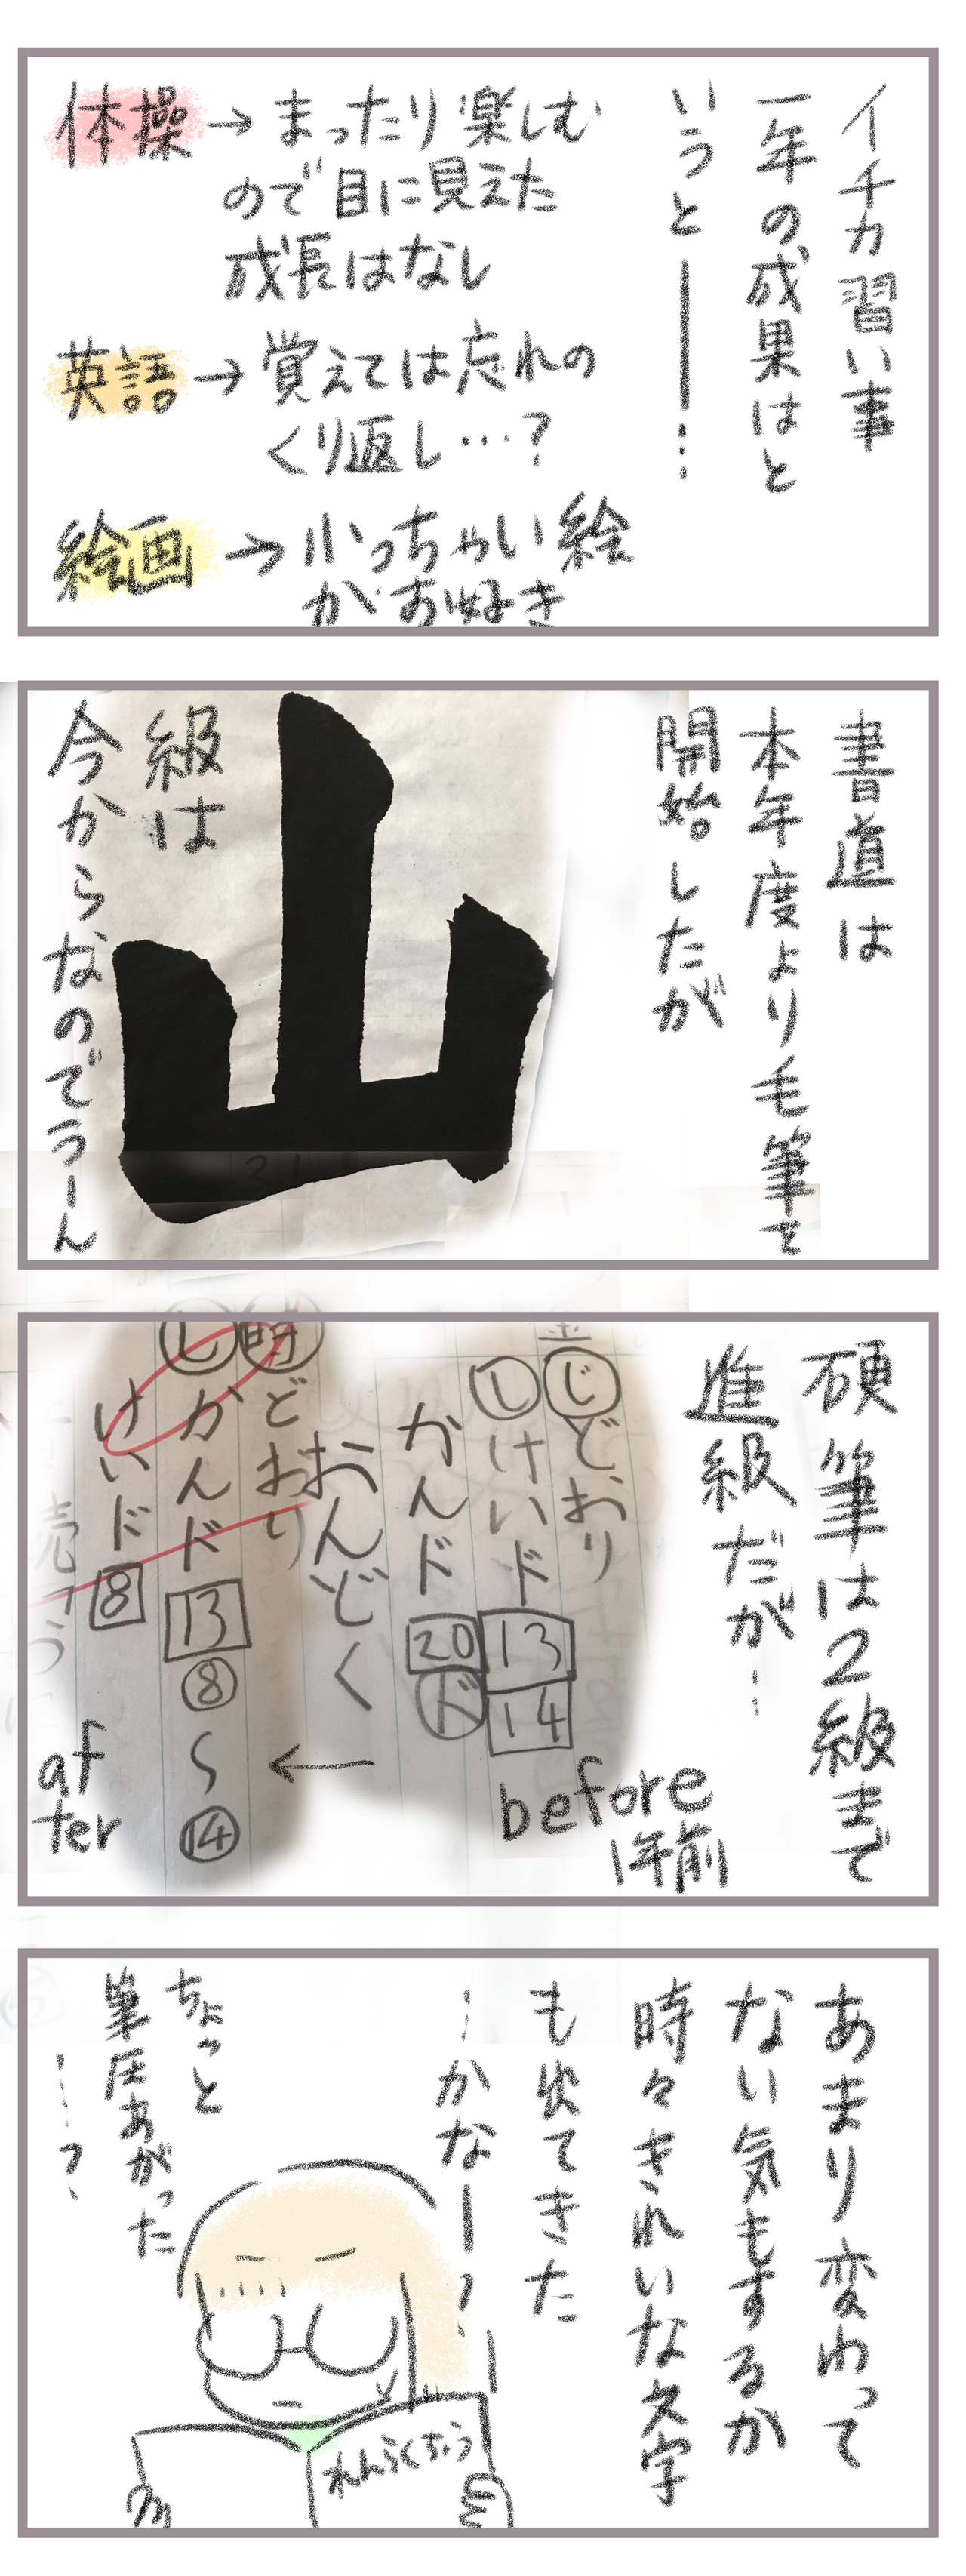 イチカ習い事
一年の成果はと
いうと――…
体操→まったり楽しむ
ので目に見えた
成長はなし
英語→覚えては忘れの
くり返し…?
絵画→小っちゃい絵
がお好き
書道は
本年度より毛筆を
開始したが
山
級は
今からなのでうーん
硬筆は2級まで
進級だが…
じどおり
しけいド13 14
かんド20ド
おんどく
明どおり
しかんド13⑧〜⑭
けいド8
before
1年前
←
af
ter
あまり変わって
ない気もするが
時々きれいな文字
も出てきた
…かなー?
ちょっと
筆圧あがった
…?
れんらくちょう